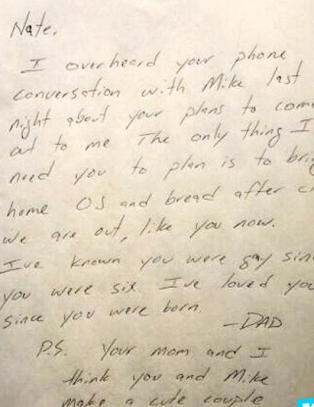 Nate,
I overheard your phone
conversation with Mike last
night about your plans to come
out to me The only thing I
need you to plan is to bring
home OJ and bread after
we are out, like you now.
I've known you were gay since
you were six I've loved you
since you were born
-DAD
P.S. Your mom and I
think you and Mike
make a cute couple